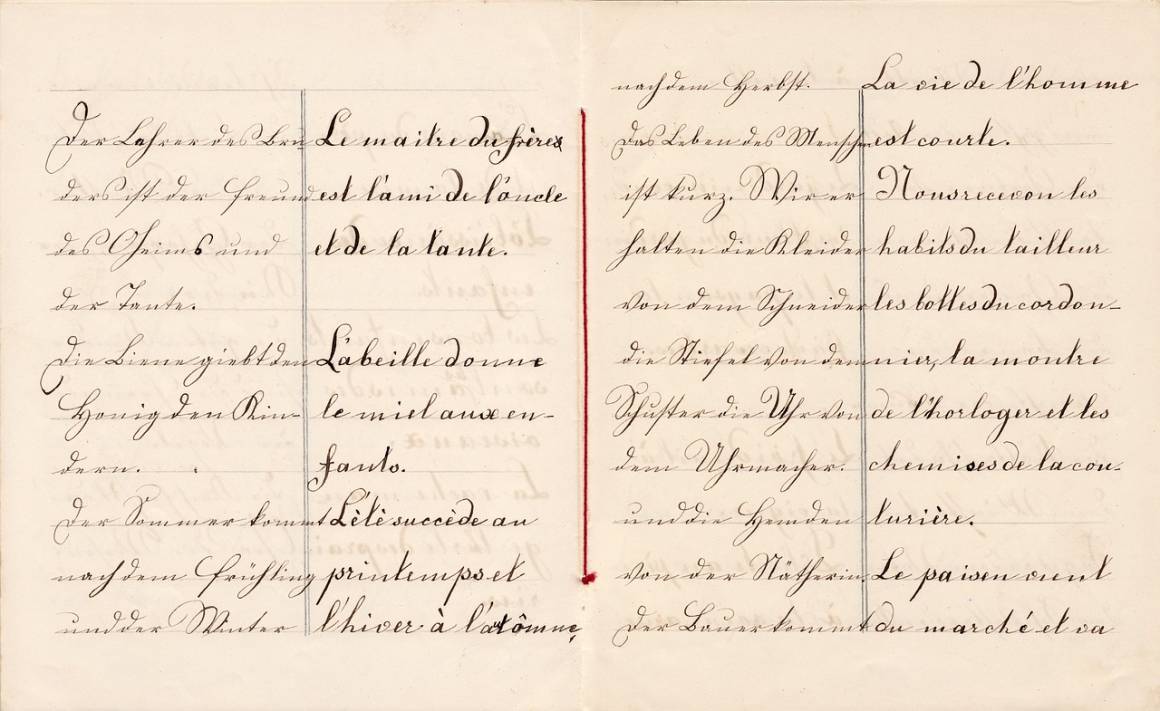 Der Lehrer des Bru-
ders ist der Freund
des Oheims und
der Tante.
Die Biene giebt den
Honig den Kin-
dern.
Der Sommer kommt
nach dem Frühling
und der Winter
Le maitre du frère
est l'ami de l'óncle
et de la tante.
L'abeille donne
le miel aux en-
fants.
L'étè succède au
printemps et
l'hiver à l'atômne
nach dem Herbst.
Das Leben des Menschen
ist kurz. Wir er
halten die Kleider
von dem Schneider
die Stiefel von dem
Schuster die Uhr von
dem Uhrmacher.
und die Hemden
von der Nätherin.
Der Bauer kommt
La vie de l'homme
est courte.
Nous recevon les
habits du tailleur
les bottes du cordon-
nier, la montre
de l'horloger et les
chemises de la cou-
turière.
Le paisen vient
du marché et va